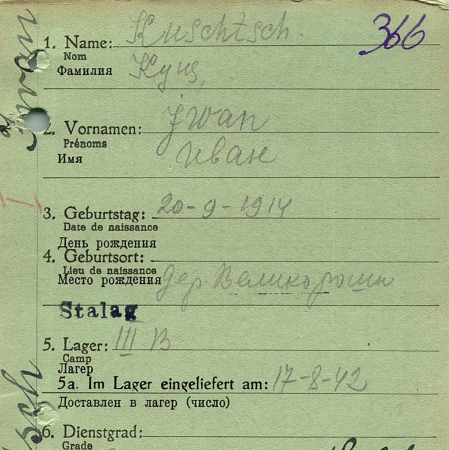 366
1. Name: Kuschtsch.
Nom
Фамилия Кущ,
Iwan
2. Vornamen: Jwan
Prénoms
Имя Иван
3. Geburtstag: 20-9-1914
Date de naissance
День рождения
4. Geburtsort:
Lieu de naissance
Место рождения дер. Великороши
Stalag
5. Lager: III B
Camp
Лагер
5a. Im Lager eingeliefert am: 17-8-42
Доставлен в лагер (число)
6. Dienstgrad:
Grade